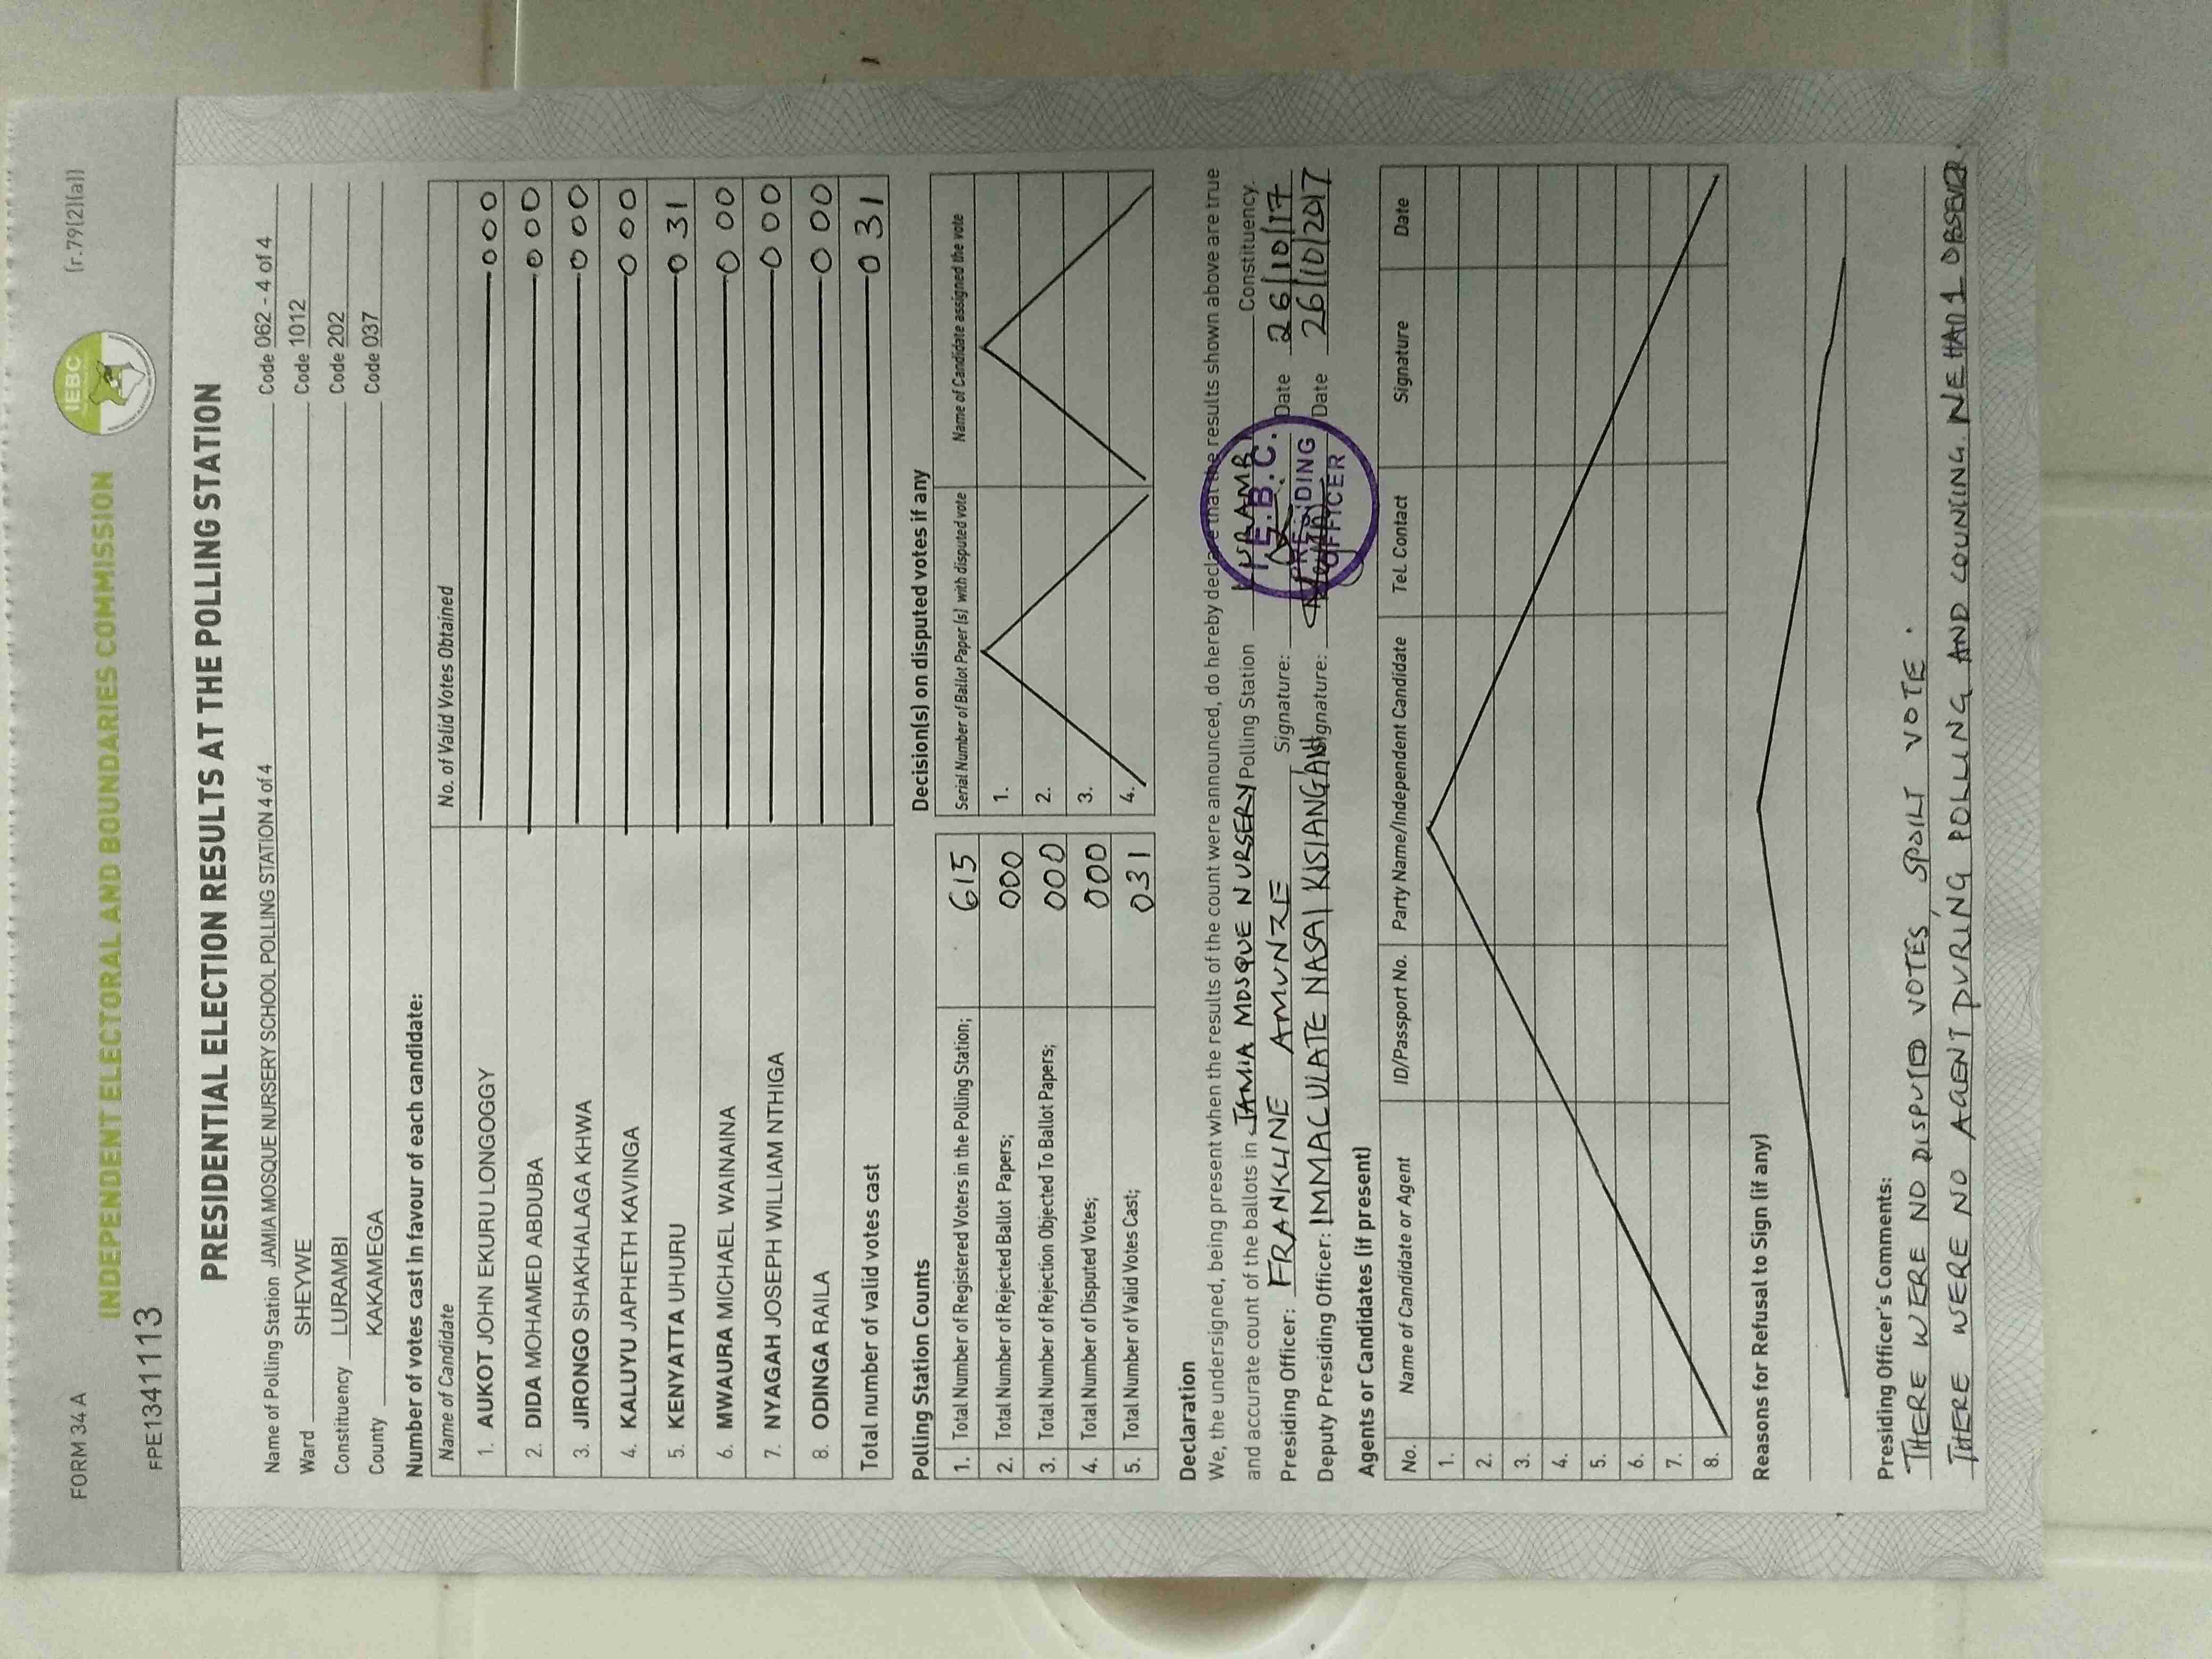 FORM 34 A
(r.79(2)(a))
IEBC
INDEPENDENT ELECTORAL AND BOUNDARIES COMMISSION
FPE1341113
PRESIDENTIAL ELECTION RESULTS AT THE POLLING STATION
Name of Polling Station JAMIA MOSQUE NURSERY SCHOOL POLLING STATION 4 of 4 Code 062 - 4 of 4
Ward SHEYWE Code 1012
Constituency LURAMBI Code 202
County KAKAMEGA Code 037
Number of votes cast in favour of each candidate:
Name of Candidate No. of Valid Votes Obtained
1. AUKOT JOHN EKURU LONGOGGY 000
2. DIDA MOHAMED ABDUBA 000
3. JIRONGO SHAKHALAGA KHWA 000
4. KALUYU JAPHETH KAVINGA 000
5. KENYATTA UHURU 031
6. MWAURA MICHAEL WAINAINA 000
7. NYAGAH JOSEPH WILLIAM NTHIGA 000
8. ODINGA RAILA 000
Total number of valid votes cast 031
Polling Station Counts
1. Total Number of Registered Voters in the Polling Station; 615
2. Total Number of Rejected Ballot Papers; 000
3. Total Number of Rejection Objected To Ballot Papers; 000
4. Total Number of Disputed Votes; 000
5. Total Number of Valid Votes Cast; 031
Decision(s) on disputed votes if any
Serial Number of Ballot Paper (s) with disputed vote Name of Candidate assigned the vote
1.
2.
3.
4.
Declaration
We, the undersigned, being present when the results of the count were announced, do hereby declare that the results shown above are true
and accurate count of the ballots in JAMIA MOSQUE NURSERY Polling Station LURAMBI Constituency.
Presiding Officer: FRANKLINE AMUNZE Signature: Date 26/10/17
Deputy Presiding Officer: IMMACULATE NASAI KISIANGANI Signature: Date 26/10/2017
I.E.B.C.
PRESIDING
OFFICER
Agents or Candidates (if present)
No. Name of Candidate or Agent ID/Passport No. Party Name/Independent Candidate Tel. Contact Signature Date
1.
2.
3.
4.
5.
6.
7.
8.
Reasons for Refusal to Sign (if any)
Presiding Officer's Comments:
THERE WERE NO DISPUTED VOTES, SPOILT VOTE.
THERE WERE NO AGENT DURING POLLING AND COUNCING. WE HAD 1 OBSEVER.